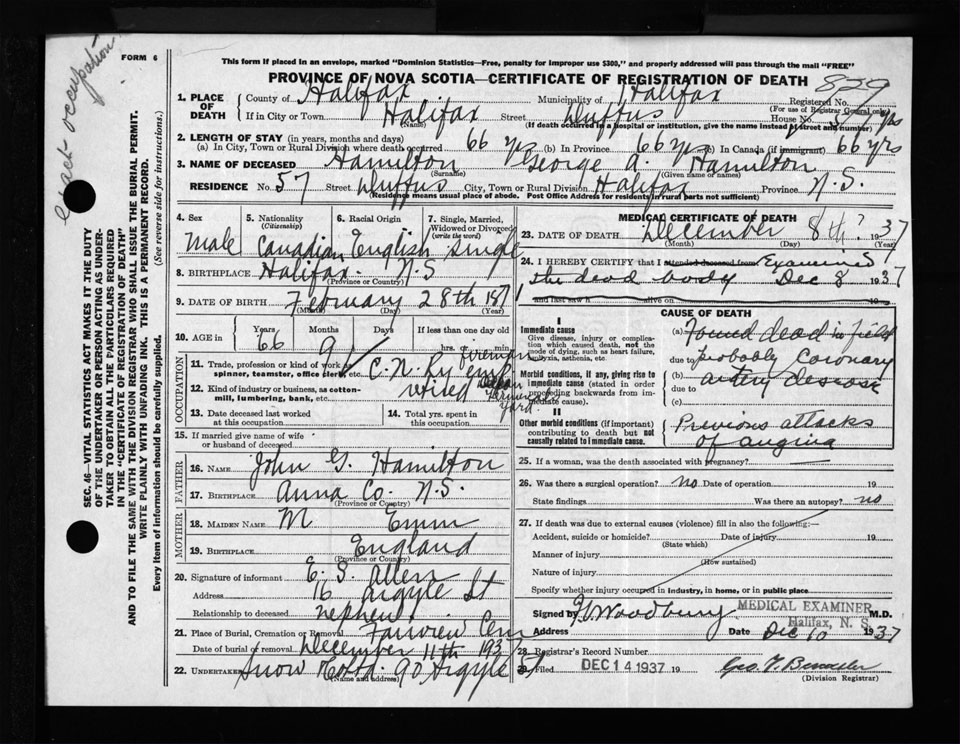 exact occupation
FORM 6
This form if placed in an envelope, marked "Dominion Statistics—Free, penalty for improper use $300," and properly addressed will pass through the mail "FREE"
PROVINCE OF NOVA SCOTIA—CERTIFICATE OF REGISTRATION OF DEATH
829
1. PLACE OF DEATH County of Halifax Municipality of Halifax Registered No.
(For use of Registrar General only)
If in City or Town Halifax Street Duffus House No. 57
(Name) (If death occurred in a hospital or institution, give the name instead of street and number)
2. LENGTH OF STAY (in years, months and days)
(a) In City, Town or Rural Division where death occurred 66 yrs (b) In Province 66 yrs (c) In Canada (if immigrant) 66 yrs
3. NAME OF DECEASED Hamilton George A. Hamilton
(Surname) (Given name or names)
RESIDENCE No. 57 Street Duffus City, Town or Rural Division Halifax Province N.S.
(Residence means usual place of abode. Post Office Address for residents in rural parts not sufficient)
4. Sex Male
5. Nationality (Citizenship) Canadian
6. Racial Origin English
7. Single, Married, Widowed or Divorced (write the word) Single
8. BIRTHPLACE Halifax N.S
(Province or Country)
9. DATE OF BIRTH February 28th 1871
(Month) (Day) (Year)
10. AGE in Years Months Days If less than one day old
66 9 hrs. or min.
OCCUPATION
11. Trade, profession or kind of work as spinner, teamster, office clerk, etc. C.N. Ry fireman
12. Kind of industry or business, as cotton-mill, lumbering, bank, etc. retired
Yard
13. Date deceased last worked at this occupation
14. Total yrs. spent in this occupation
15. If married give name of wife or husband of deceased
FATHER
16. NAME John G. Hamilton
17. BIRTHPLACE Anna Co. N.S.
(Province or Country)
MOTHER
18. MAIDEN NAME M Emm
19. BIRTHPLACE England
(Province or Country)
20. Signature of informant E. S. Allen
Address 16 Argyle St
Relationship to deceased nephew
21. Place of Burial, Cremation or Removal Fairview Cem
Date of burial or removal December 11th 1937
22. UNDERTAKER Snow & Co Ltd. 90 Argyle St
(Name and address)
MEDICAL CERTIFICATE OF DEATH
23. DATE OF DEATH December 8th? 1937
(Month) (Day) (Year)
24. I HEREBY CERTIFY that I attended deceased from Examined
the dead body Dec 8 1937
and last saw h alive on 19
CAUSE OF DEATH
I
Immediate cause
Give disease, injury or complication which caused death, not the mode of dying, such as heart failure, asphyxia, asthenia, etc.
Morbid conditions, if any, giving rise to immediate cause (stated in order proceeding backwards from immediate cause).
II
Other morbid conditions (if important) contributing to death but not causally related to immediate cause.
(a) Found dead in field
due to probably Coronary
(b) artery disease
due to
(c)
Previous attacks
of angina
25. If a woman, was the death associated with pregnancy?
26. Was there a surgical operation? no Date of operation 19
State findings Was there an autopsy? no
27. If death was due to external causes (violence) fill in also the following:—
Accident, suicide or homicide? Date of injury 19
(State which)
Manner of injury
(How sustained)
Nature of injury
Specify whether injury occurred in industry, in home, or in public place
Signed by Woodbury M.D.
MEDICAL EXAMINER
Halifax, N. S.
Address Date Dec 10 1937
28. Registrar's Record Number
29. Filed DEC 14 1937 19
(Division Registrar)
SEC. 46—VITAL STATISTICS ACT MAKES IT THE DUTY
OF THE UNDERTAKER OR PERSON ACTING AS UNDER-
TAKER TO OBTAIN ALL THE PARTICULARS REQUIRED
IN THE "CERTIFICATE OF REGISTRATION OF DEATH"
AND TO FILE THE SAME WITH THE DIVISION REGISTRAR WHO SHALL ISSUE THE BURIAL PERMIT.
WRITE PLAINLY WITH UNFADING INK. THIS IS A PERMANENT RECORD.
Every item of information should be carefully supplied. (See reverse side for instructions.)